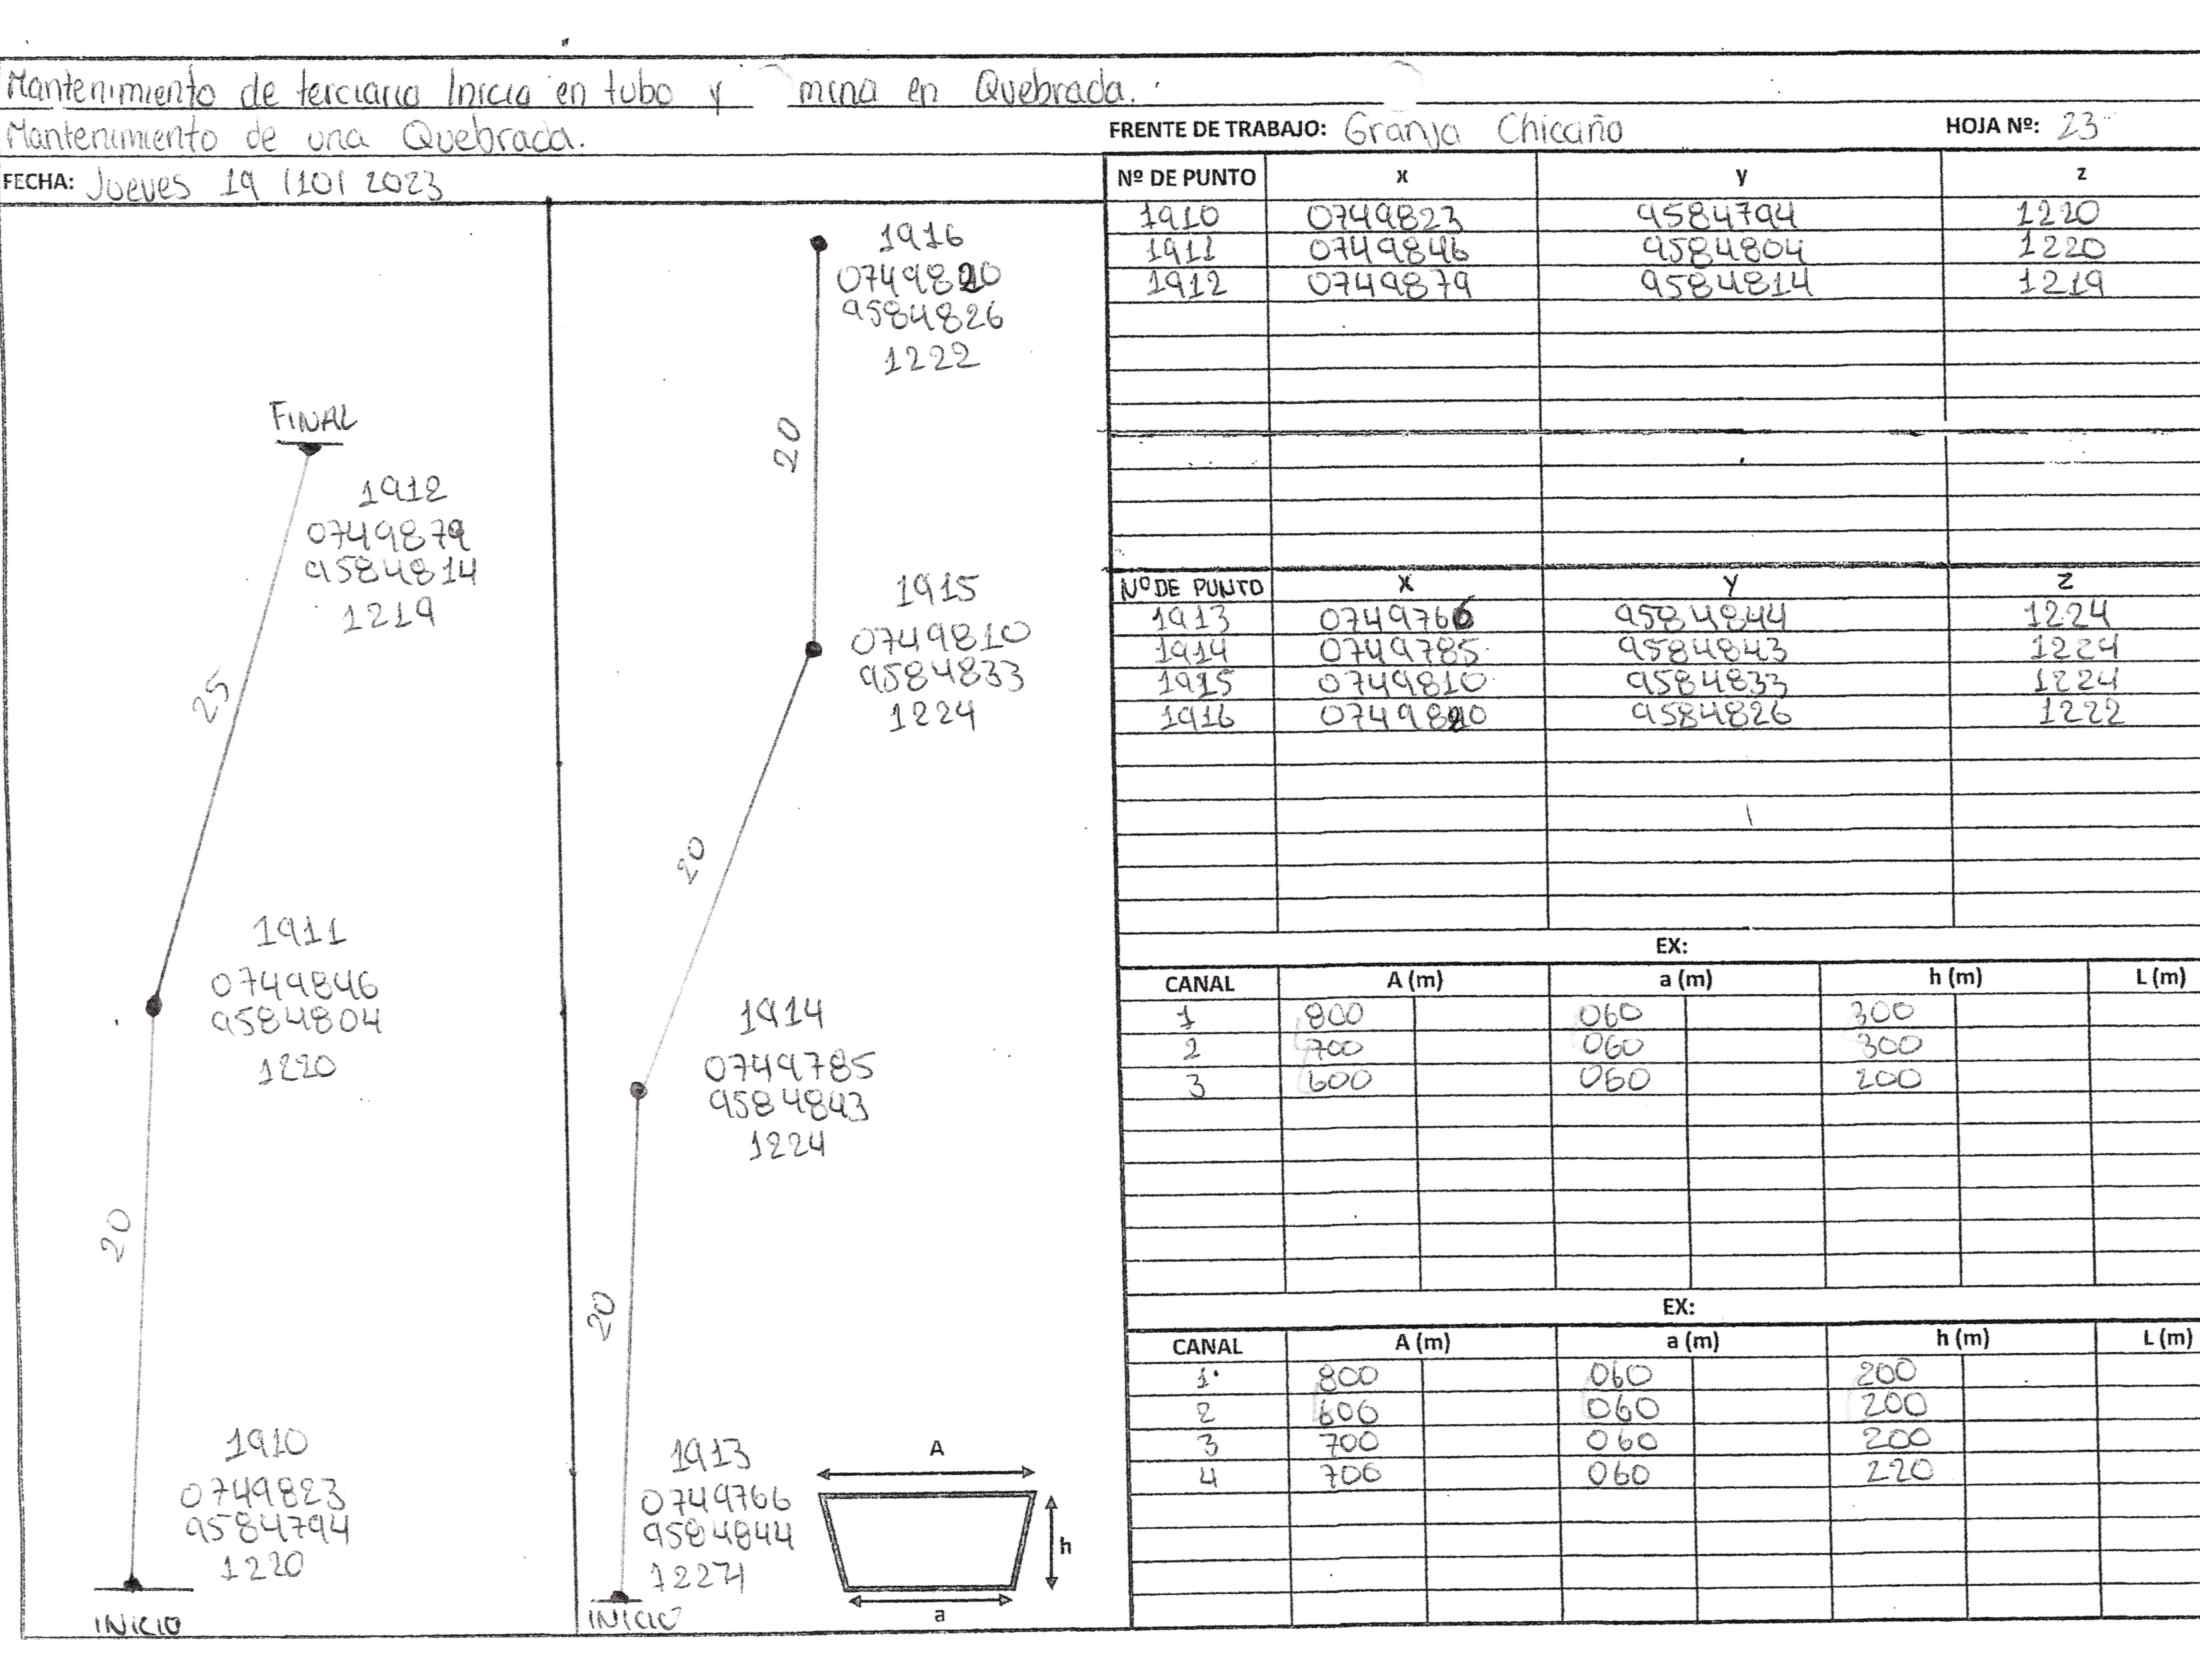 Mantenimiento de terciaria Inicia en tubo y mina en Quebrada.
Mantenimiento de una Quebrada.
FRENTE DE TRABAJO: Granja Chicaiño HOJA Nº: 23
FECHA: Jueves 19 /10/ 2023
FINAL
1912
0749879
9584814
1219
25
1911
0749846
9584804
1220
20
1910
0749823
9584794
1220
INICIO
1916
0749820
9584826
1222
20
1915
0749810
9584833
1224
20
1914
0749785
9584843
1224
20
1913
0749766
9584844
1224
INICIO
A
h
a
Nº DE PUNTO x y z
1910 0749823 9584794 1220
1911 0749846 9584804 1220
1912 0749879 9584814 1219
Nº DE PUNTO X Y Z
1913 0749766 9584844 1224
1914 0749785 9584843 1224
1915 0749810 9584833 1224
1916 0749820 9584826 1222
EX:
CANAL A (m) a (m) h (m) L (m)
1 800 060 300
2 700 060 300
3 600 060 200
EX:
CANAL A (m) a (m) h (m) L (m)
1 800 060 200
2 600 060 200
3 700 060 200
4 700 060 220